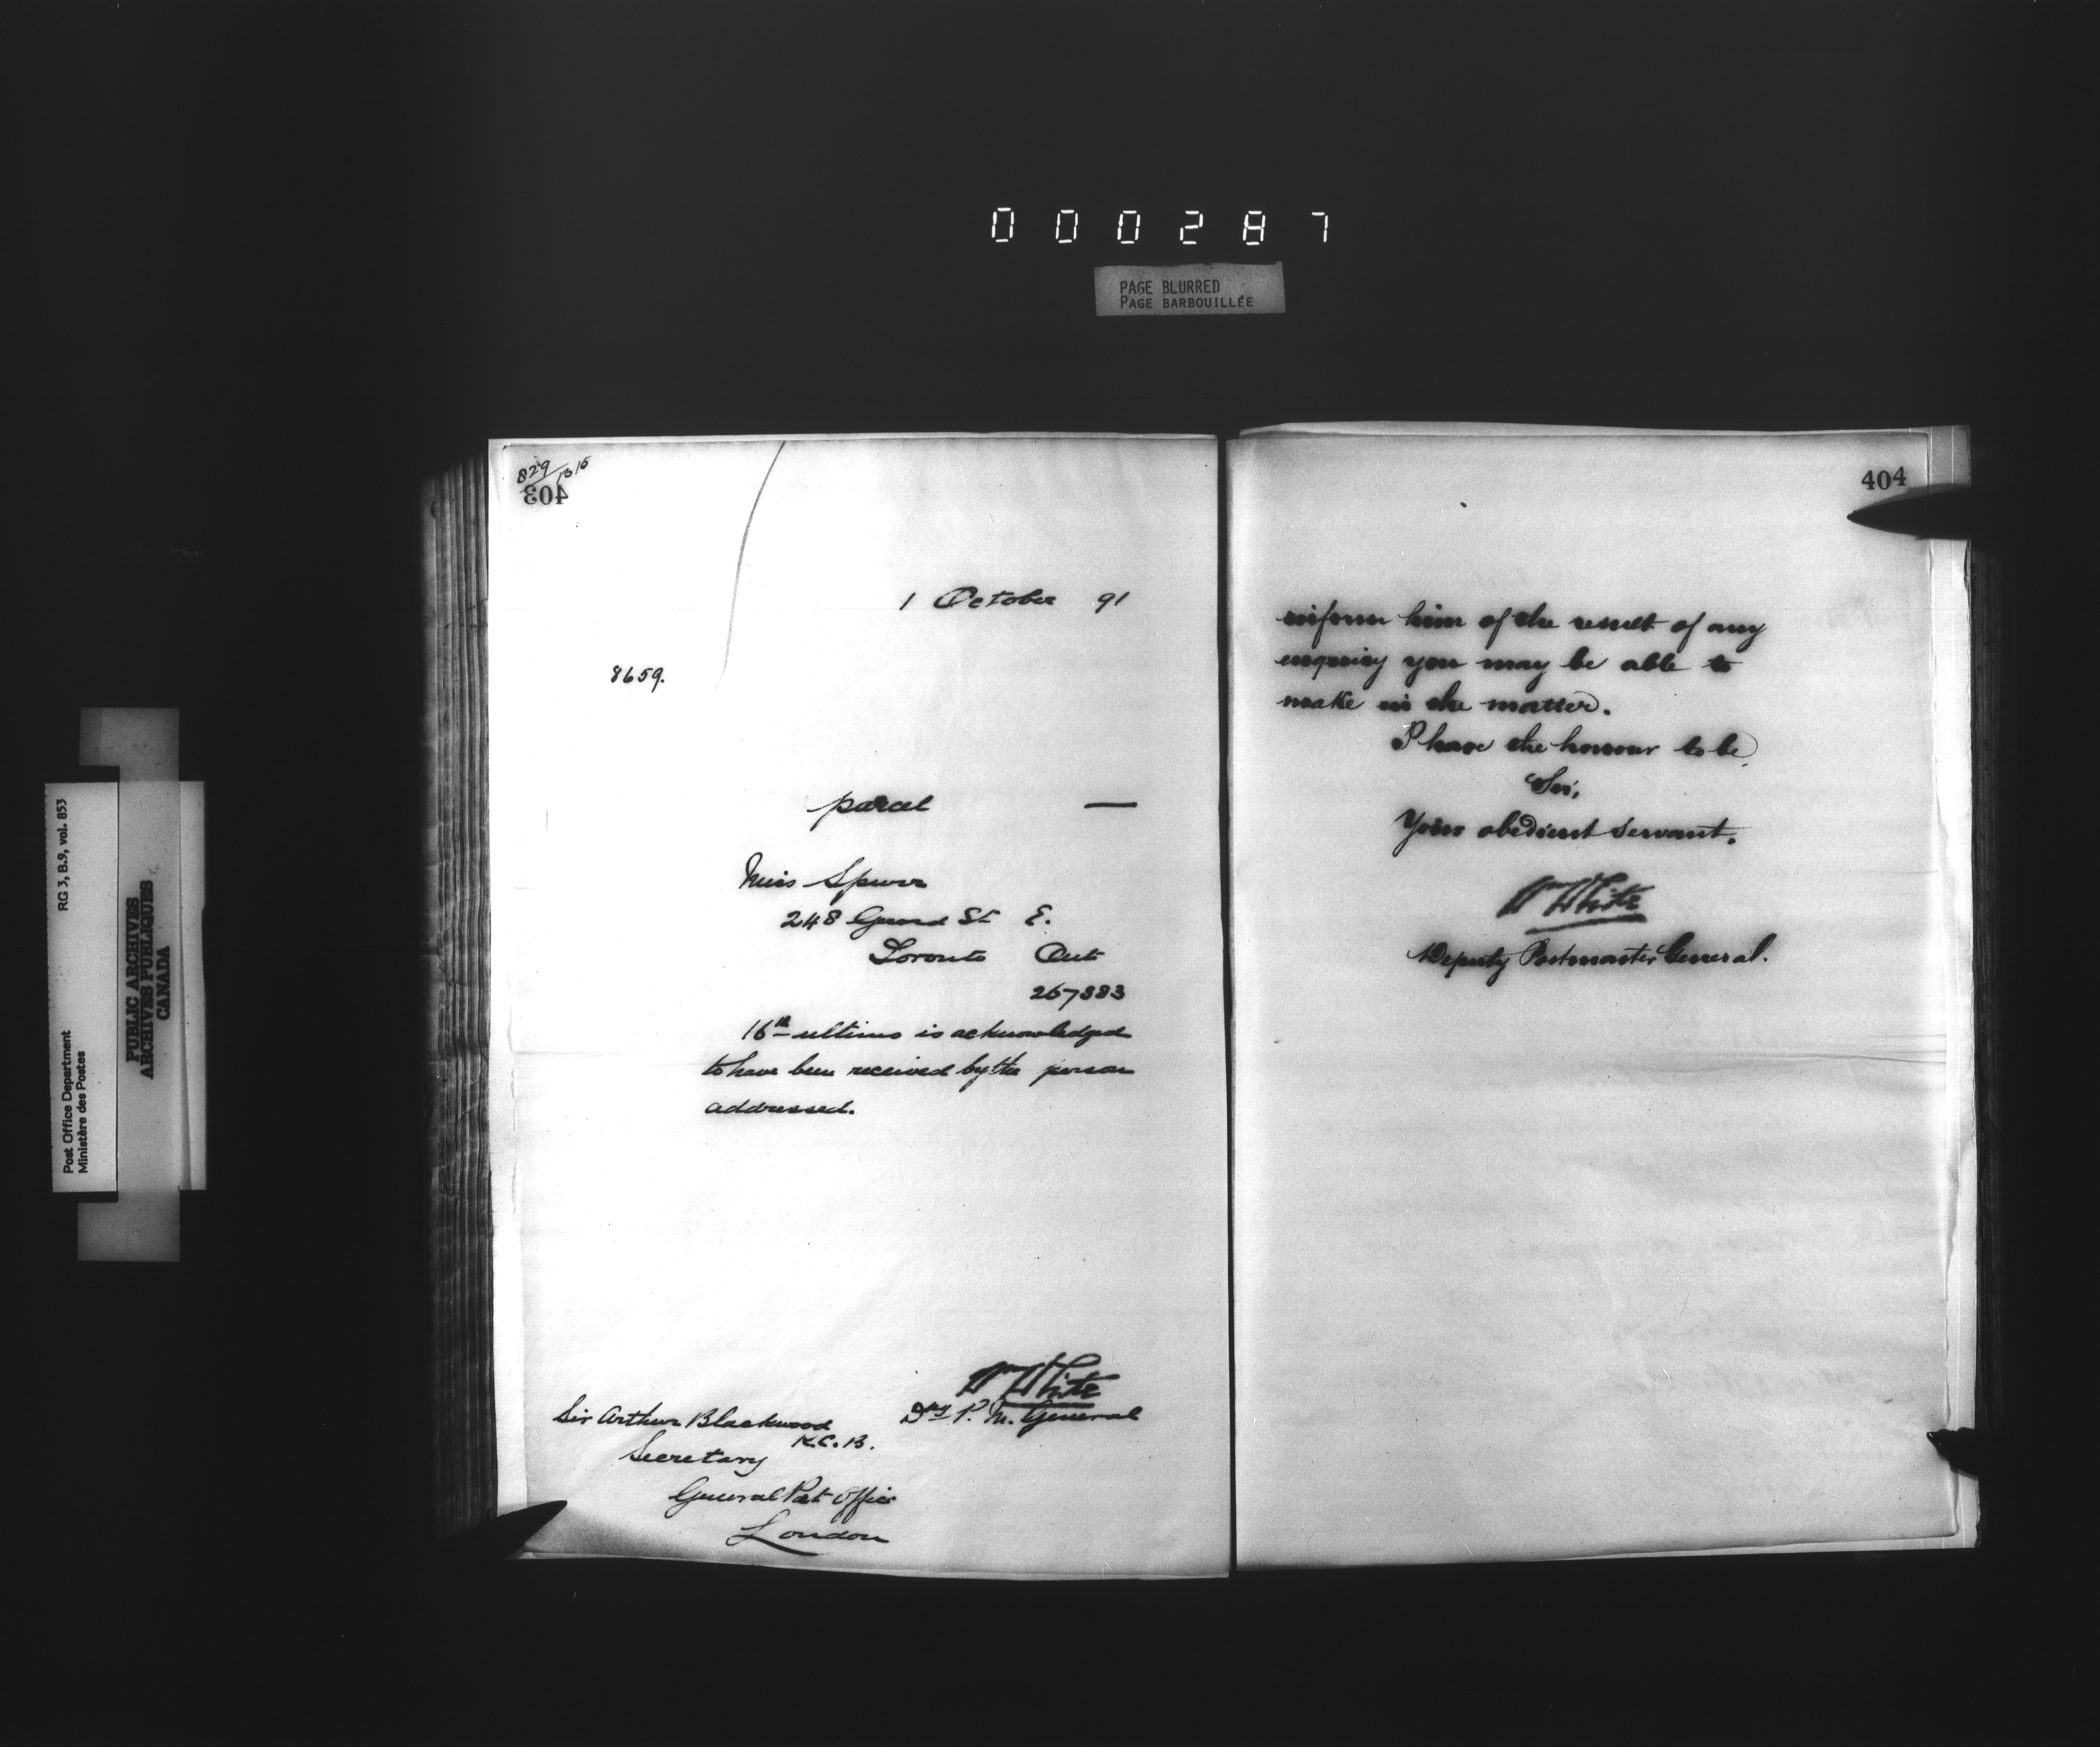 000287
PAGE BLURRED
PAGE BARBOUILLÉE
RG 3, B.9, vol. 853
Post Office Department
Ministère des Postes
PUBLIC ARCHIVES
ARCHIVES PUBLIQUES
CANADA
829
403
1 October 91
8659.
parcel —
Miss Spurr
248 Gerrard St E.
Toronto Ont
267383
16th ultimo is acknowledged
to have been received by the person
addressed.
Wm White
Dy P. M. General
Sir Arthur Blackwood
K.C.B.
Secretary
General Post Office
London
404
inform him of the result of any
enquiry you may be able to
make in the matter.
I have the honour to be,
Sir,
Your obedient servant.
Wm White
Deputy Postmaster General.